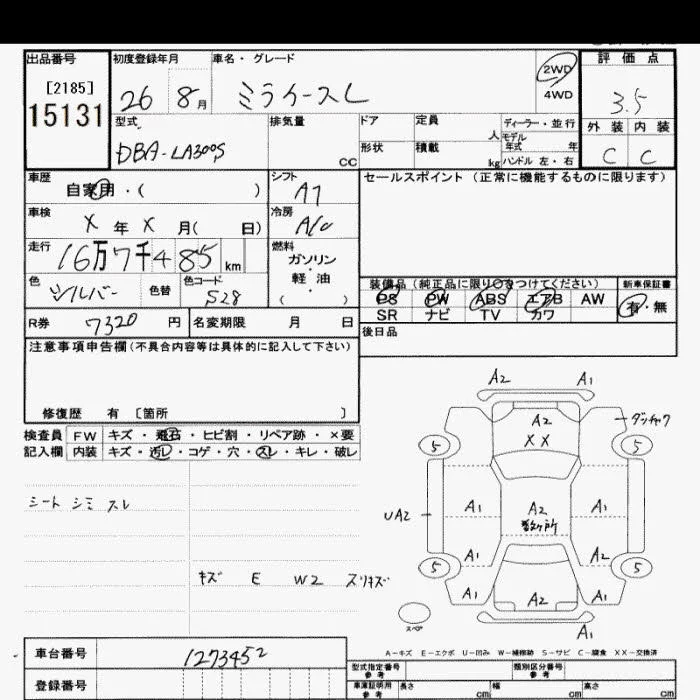 出品番号 初度登録年月 車名・グレード 2WD 評価点
[2185] 26 8月 ミライースL 4WD 3.5
15131 型式 排気量 ドア 定員 ディーラー・並行 外装 内装
DBA-LA300S CC 形状 積載 人 モデル年式 年 C C
kg ハンドル 左・右
車歴 自家用・( ) シフト A7 セールスポイント(正常に機能するものに限ります)
車検 X 年 X 月( 日) 冷房 A/C
走行 16万7千485 km 燃料 ガソリン・軽油・( )
色 シルバー 色替 色コード S28 装備品(純正品に限り○をつけてください) 新車保証書
PS PW ABS エアB AW 有・無
R券 7320 円 名変期限 月 日 SR ナビ TV カワ
後日品
注意事項申告欄(不具合内容等は具体的に記入して下さい)
修復歴 有 〔箇所 〕
検査員 FW キズ・飛石・ヒビ割・リペア跡・×要
記入欄 内装 キズ・汚レ・コゲ・穴・スレ・キレ・破レ
シート シミ スレ
キズ E W2 スリキズ
A2 A1
A2 XX
5 5
A1 A2 A1
UA2
A1 A2
5 5
A1 A2 A1
スペア A1
A-キズ E-エクボ U-凹み W-補修跡 S-サビ C-腐食 XX-交換済
車台番号 1273452 型式指定番号 参考 類別区分番号 参考
登録番号 車庫証明用 参考 長さ cm 幅 cm 高さ cm